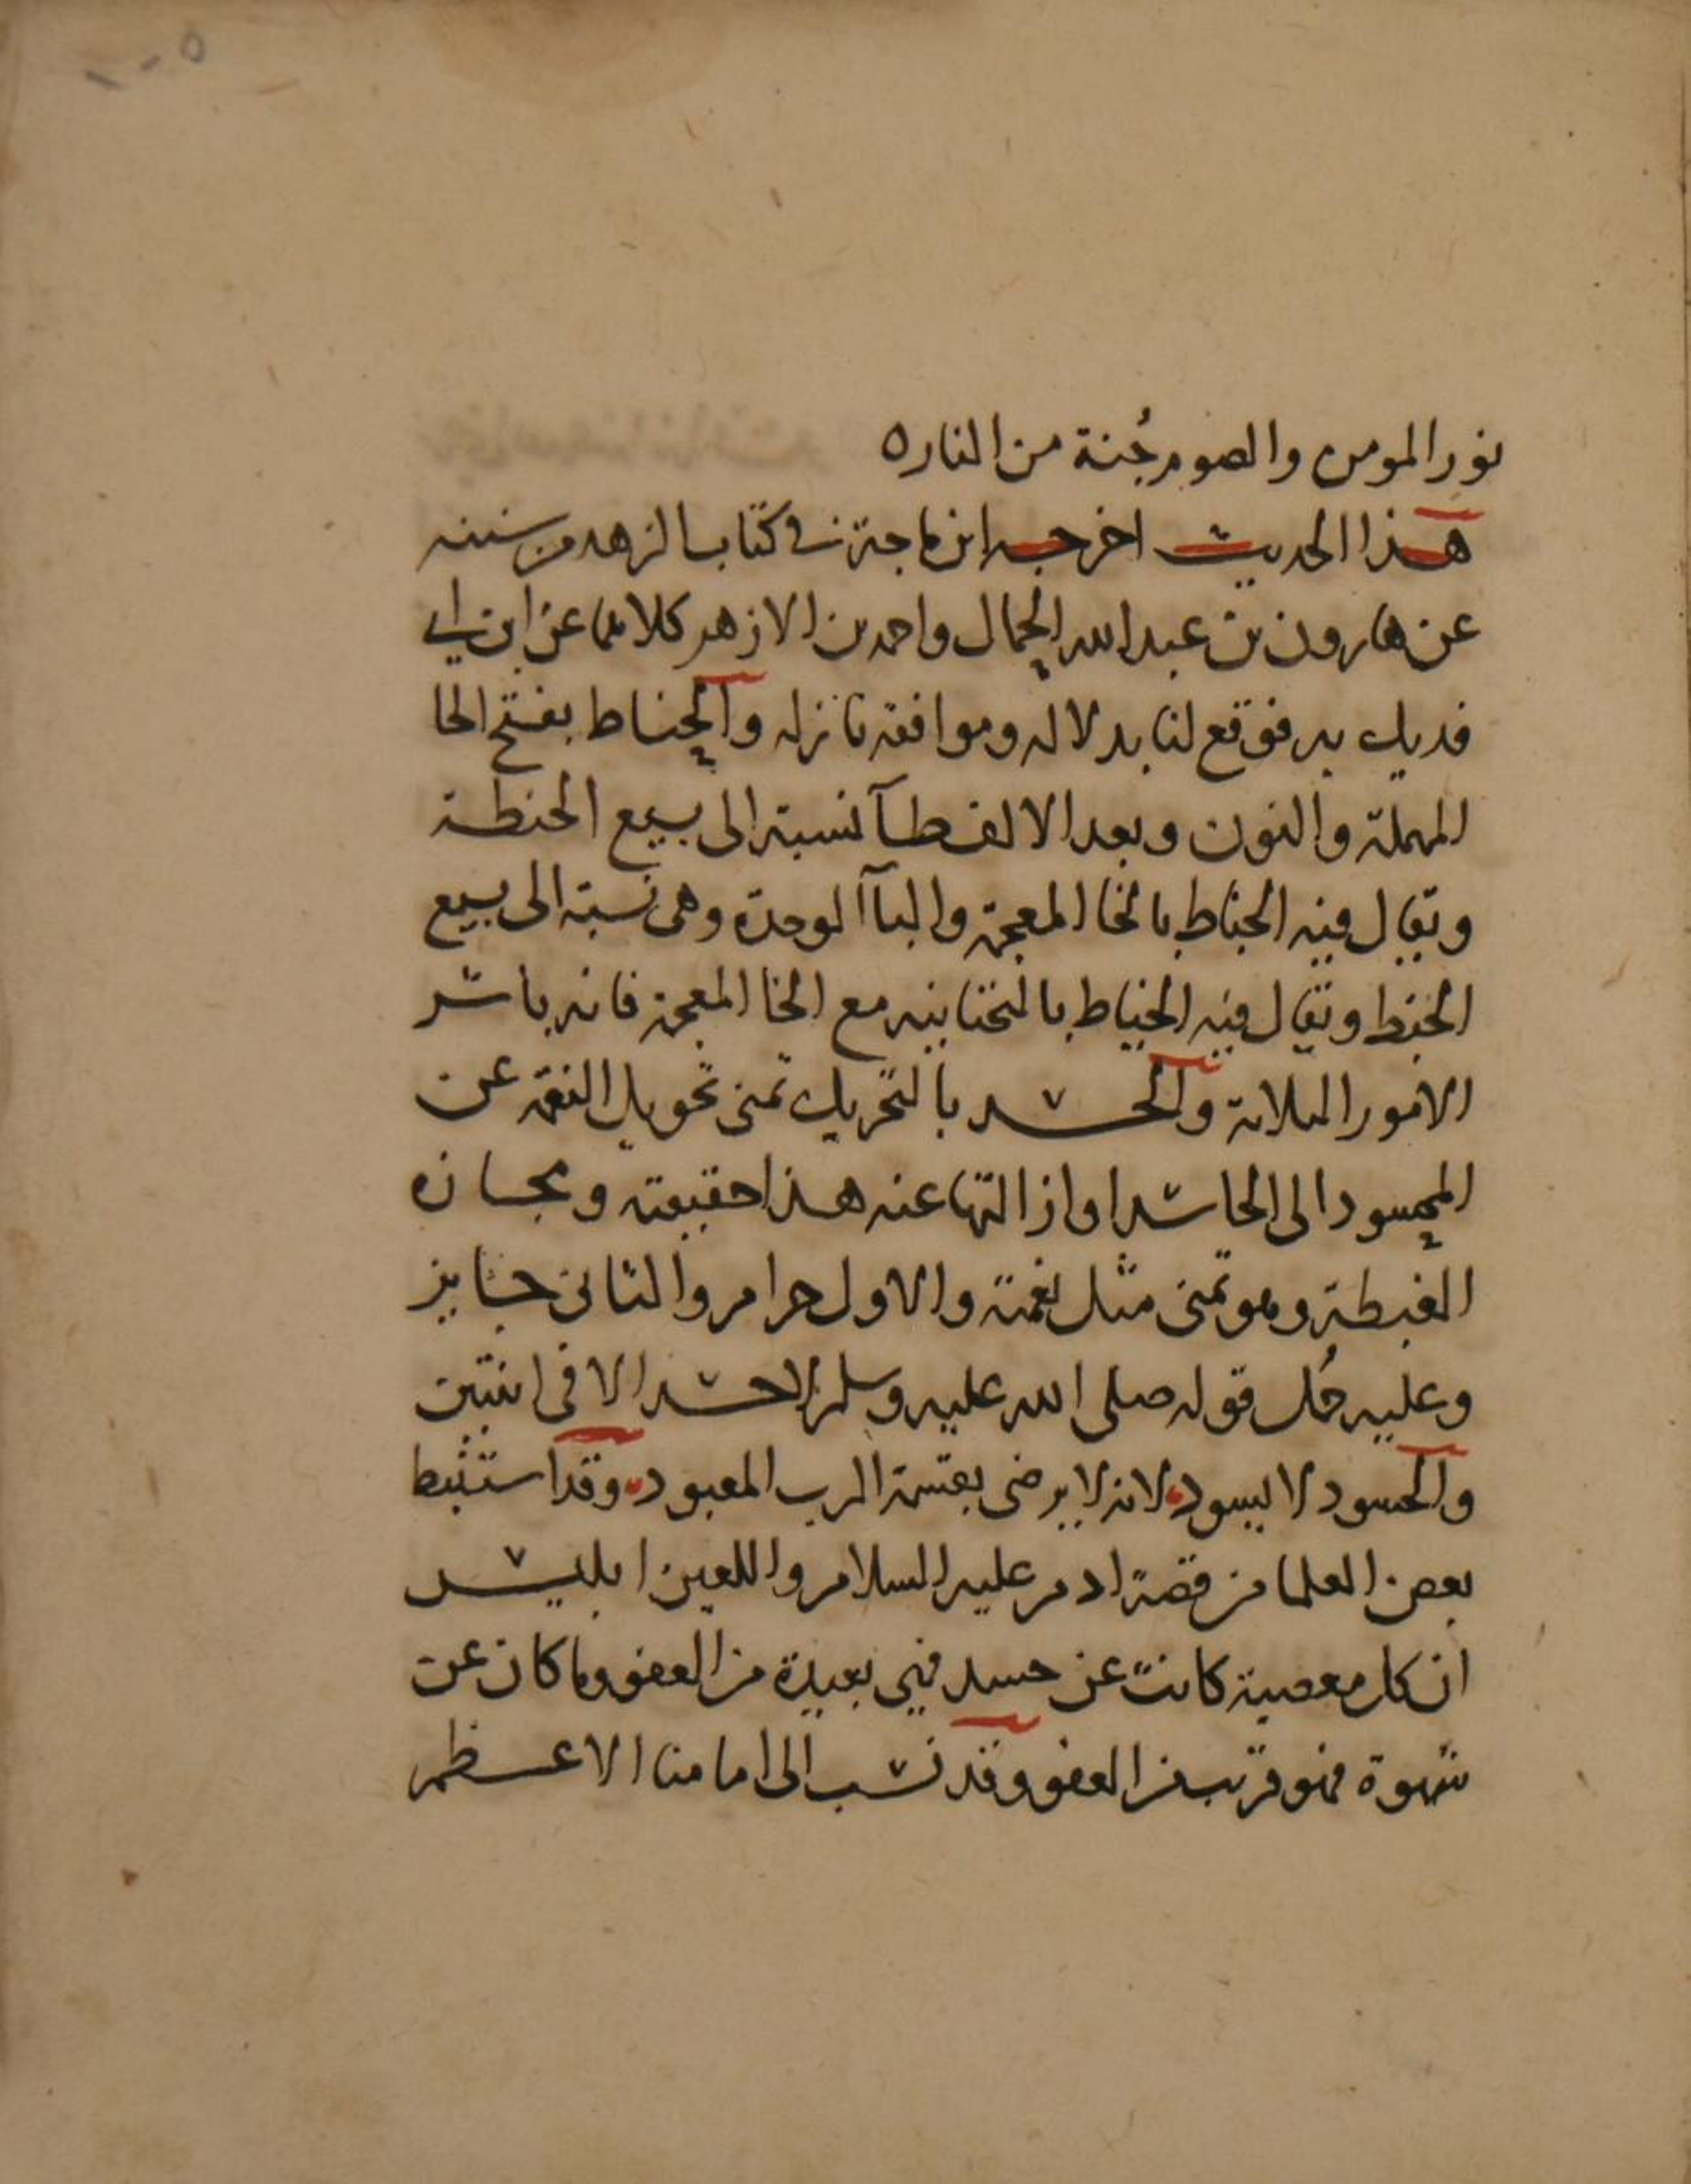 نور المومن والصوم جُنة من النار ه
هذا الحديث اخرجه ابن ماجة في كتاب الزهد من سننه
عن هارون بن عبد الله الحمال واحمد بن الازهر كلاهما عن ابن ابي
فديك به فوقع لنا بدلا له وموافقة نازله والحناط بفتح الحا
المهملة والنون وبعد الالف طآ نسبة الى بيع الحنطة
ويقال فيه الخباط بالخا المعجمة والبآ الموحدة وهى نسبة الى بيع
الخبط ويقال فيه الخياط بالتحتانيه مع الخا المعجمة فانه باشر
الامور الثلاثة والحسد بالتحريك تمنى تحويل النعمة عن
المحسود الى الحاسد او ازالتها عنه هذا حقيقته ومجازه
الغبطة وهو تمنى مثل نعمته والاول حرام والثانى جايز
وعليه حُمل قوله صلى الله عليه وسلم لا حسد الا فى اثنتين
والحسود لا يسود لانه لا يرضى بقسمة الرب المعبود وقد استنبط
بعض العلما من قصة ادم عليه السلام واللعين ابليس
ان كل معصية كانت عن حسد فهي بعيدة من العفو وما كان عن
شهوة فهو قريب من العفو وقد نسب الى امامنا الاعظم